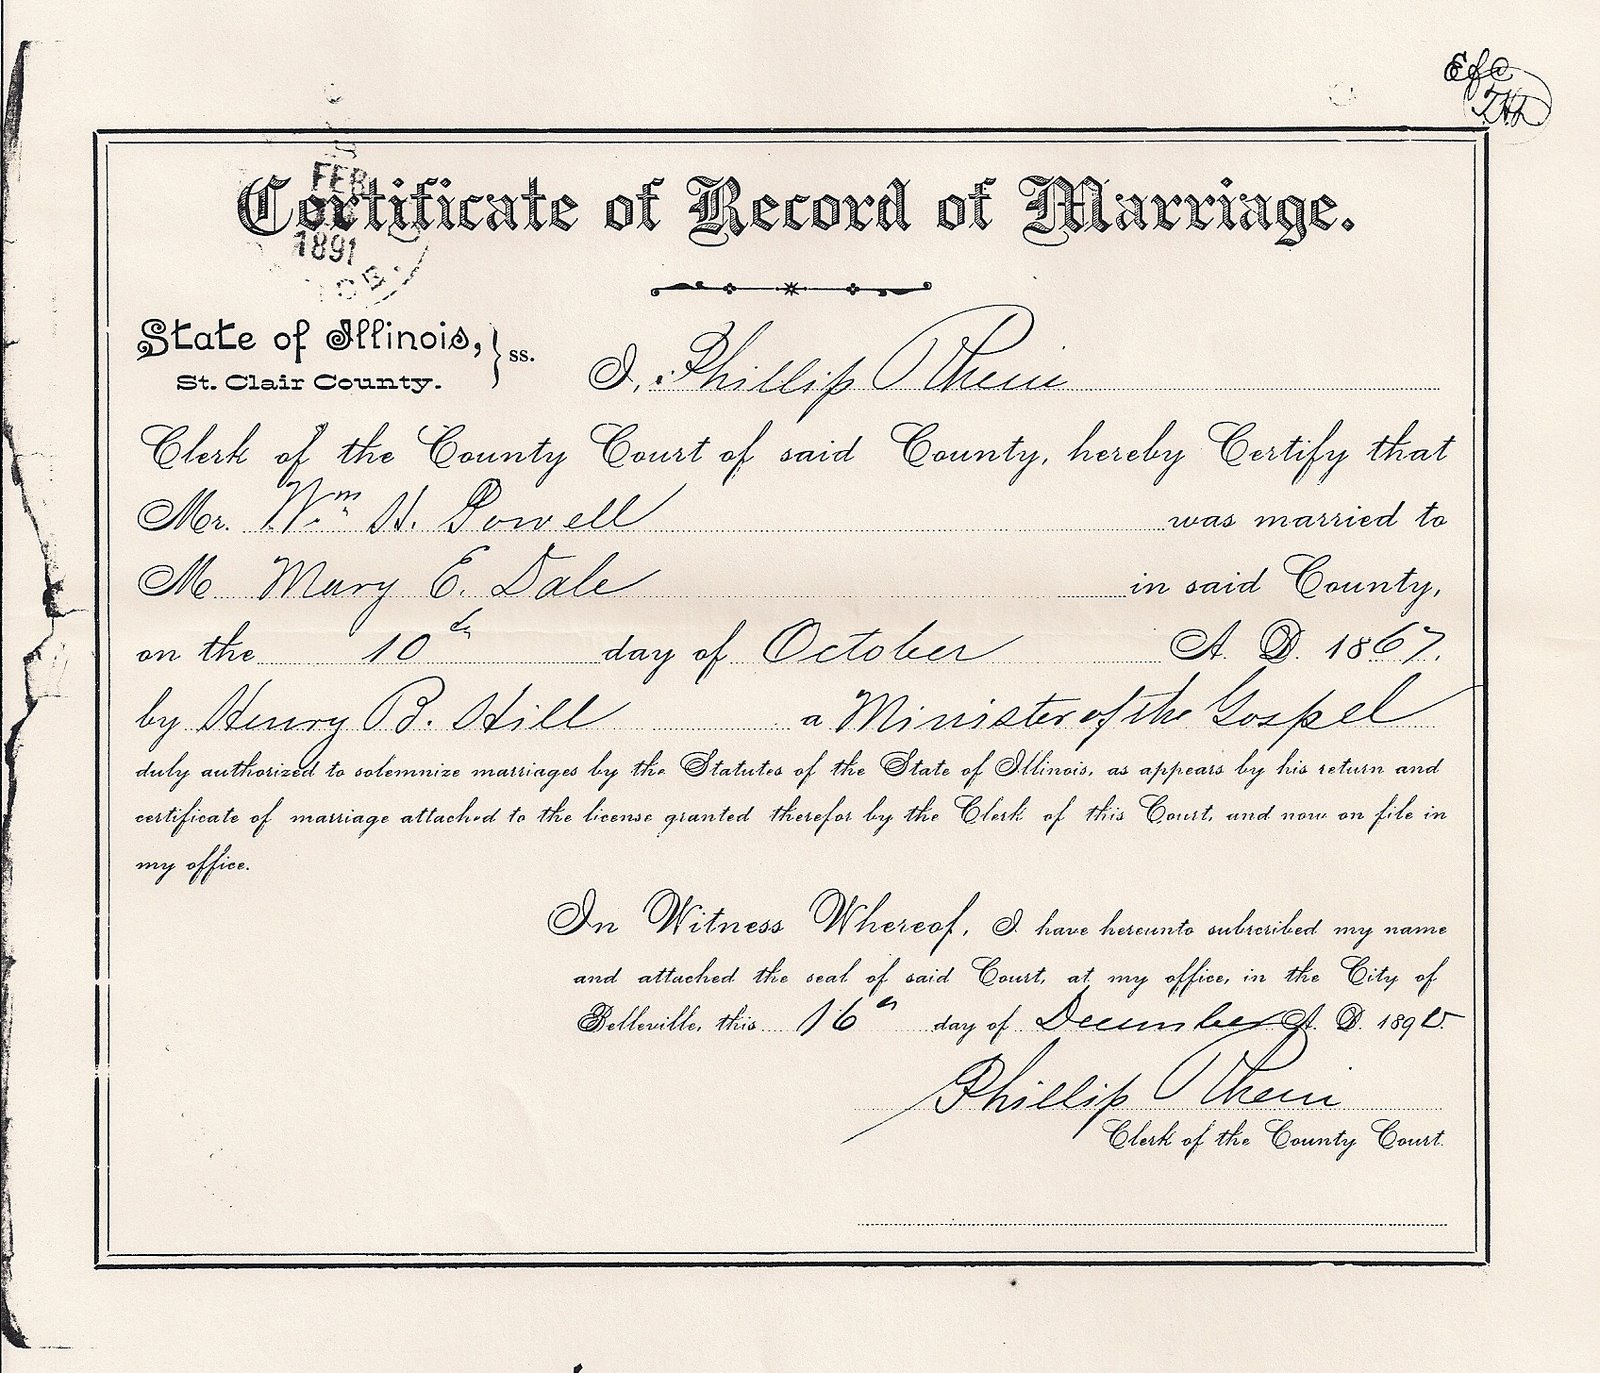 E f C
T.H.D
FEB
1891
Certificate of Record of Marriage.
State of Illinois, } ss.
St. Clair County.
I, Phillip Rhein
Clerk of the County Court of said County, hereby Certify that
Mr. Wm H. Powell was married to
M Mary E. Dale in said County,
on the 10th day of October A. D. 1867.
by Henry B. Hill a Minister of the Gospel
duly authorized to solemnize marriages by the Statutes of the State of Illinois, as appears by his return and
certificate of marriage attached to the license granted therefor by the Clerk of this Court, and now on file in
my office.
In Witness Whereof, I have hereunto subscribed my name
and attached the seal of said Court, at my office, in the City of
Belleville, this 16th day of December A. D. 1890.
Phillip Rhein
Clerk of the County Court.